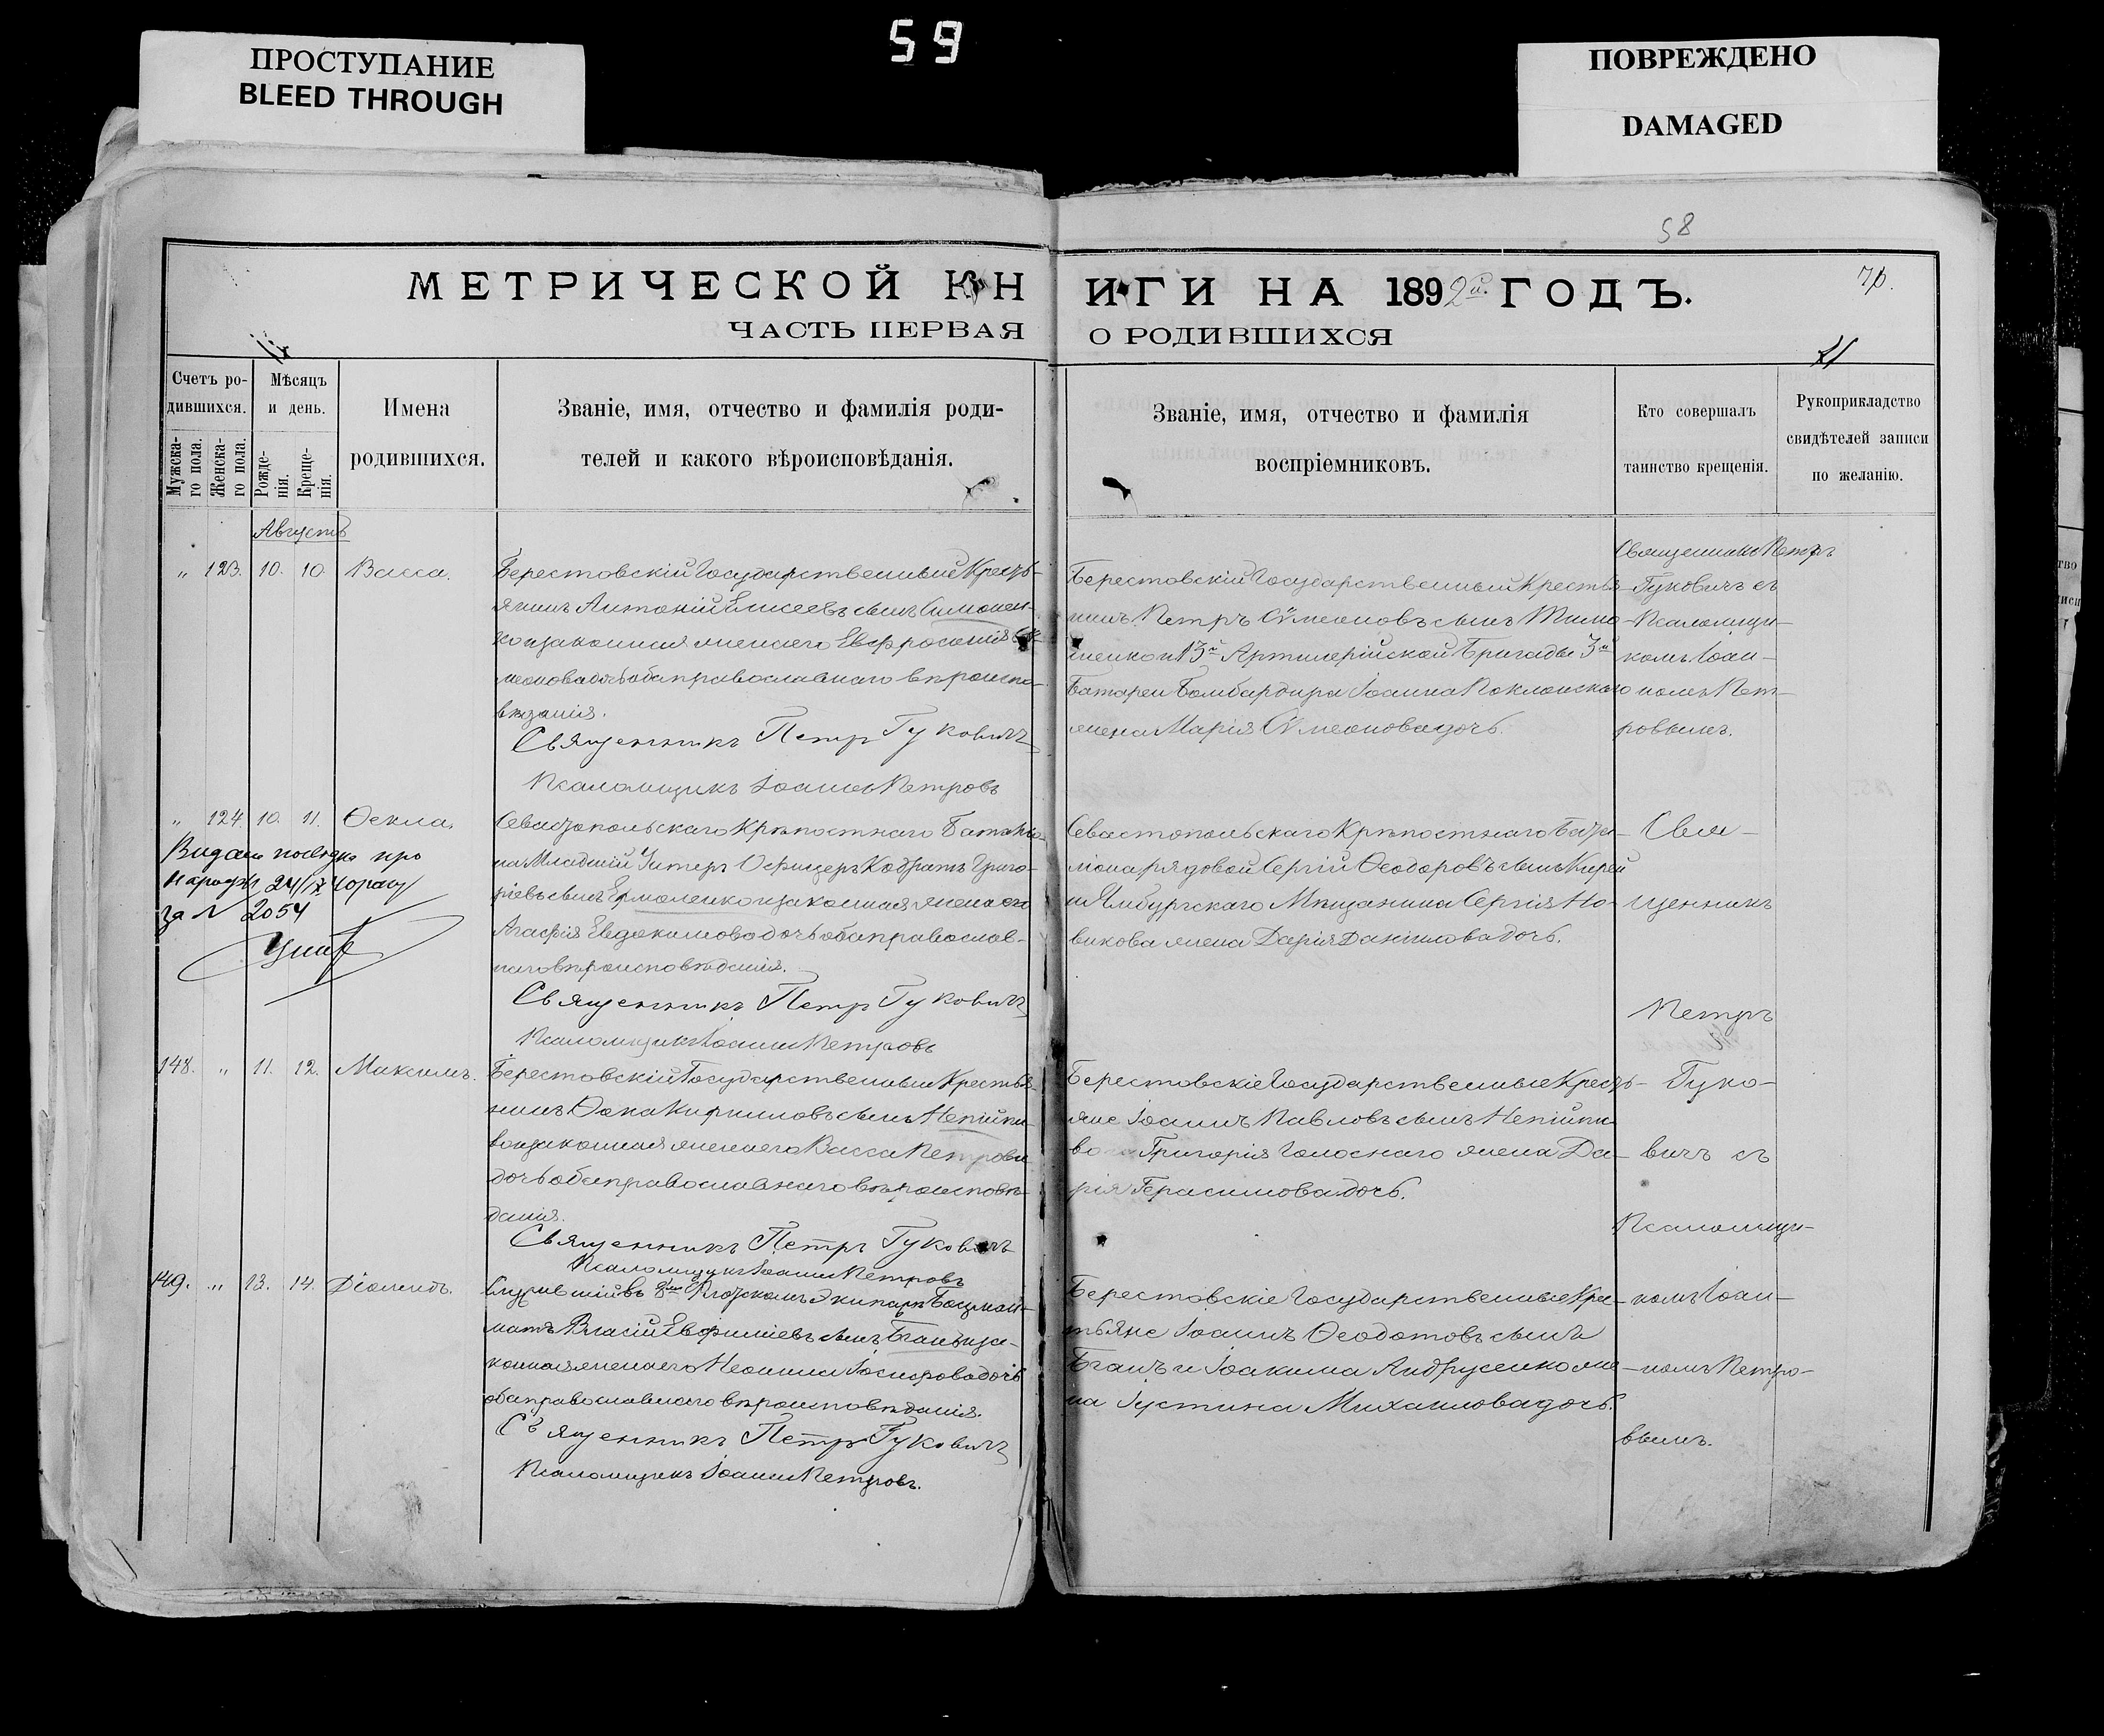 59
ПРОСТУПАНИЕ
BLEED THROUGH
ПОВРЕЖДЕНО
DAMAGED
58
МЕТРИЧЕСКОЙ КНИГИ НА 1892й ГОДЪ.
ЧАСТЬ ПЕРВАЯ О РОДИВШИХСЯ
Счетъ ро-
дившихся.
Мужска-
го пола.
Женска-
го пола.
Мѣсяцъ
и день.
Рожде-
нія.
Креще-
нія.
Имена
родившихся.
Званіе, имя, отчество и фамилія роди-
телей и какого вѣроисповѣданія.
Званіе, имя, отчество и фамилія
воспріемниковъ.
Кто совершалъ
таинство крещенія.
Рукоприкладство
свидѣтелей записи
по желанію.
Августъ
„ 123. 10. 10. Васса.
Берестовскій Государственный Кресть-
янинъ Антоній Елисеевъ сынъ Симонен-
ко и законная жена его Евфросинія Си-
меонова дочь оба православнаго вѣроиспо-
вѣданія.
Священникъ Петръ Гуковичъ
Псаломщикъ Іоаннъ Петровъ
Берестовскій Государственный Крестья-
нинъ Петръ Сѵмеоновъ сынъ Тимо-
шенко и 13й Артилерійской Бригады 3й
Батареи Бомбардира Іоанна Поклонскаго
жена Марія Сѵмеонова дочь.
Священникъ Петръ
Гуковичъ съ
Псаломщи-
комъ Іоан-
номъ Пет-
ровымъ.
„ 124. 10. 11. Ѳекла.
Видано
про
24/X
за № 2054
Севастопольскаго Крѣпостнаго Баталіо-
на Младшій Унтеръ Офицеръ Кодратъ Григо-
ріевъ сынъ Ермоленко и законная жена его
Агафія Евдокимова дочь оба православ-
наго вѣроисповѣданія.
Священникъ Петръ Гуковичъ
Псаломщикъ Іоаннъ Петровъ
Севастопольскаго Крѣпостнаго Бата-
ліона рядовой Сергій Ѳеодоровъ сынъ Кирей
и Ямбургскаго Мѣщанина Сергія Но-
викова жена Дарія Даніилова дочь.
Свя-
щенникъ
Петръ
Гуко-
вичъ съ
Псаломщи-
комъ Іоан-
номъ Петро-
вымъ.
148. „ 11. 12. Максимъ.
Берестовскій Государственный Крестья-
нинъ Ѳока Кирилловъ сынъ Непійпи-
во и законная жена его Васса Петрова
дочь оба православнаго вѣроисповѣ-
данія.
Священникъ Петръ Гуковичъ
Псаломщикъ Іоаннъ Петровъ
Берестовскіе Государственные Кресть-
яне Іоаннъ Павловъ сынъ Непійпи-
во и Григорія Голоснаго жена Да-
рія Герасимова дочь.
149. „ 13. 14. Діомидъ.
Служившій въ Флотскомъ Экипажѣ Боцман-
матъ Власій Евфиміевъ сынъ Бганъ и за-
конная жена его Неонила Іосифова дочь
оба православнаго вѣроисповѣданія.
Священникъ Петръ Гуковичъ
Псаломщикъ Іоаннъ Петровъ.
Берестовскіе Государственные Крес-
тьяне Іоаннъ Ѳеодотовъ сынъ
Бганъ и Іоакима Андрусенко же-
на Іустина Михаилова дочь.